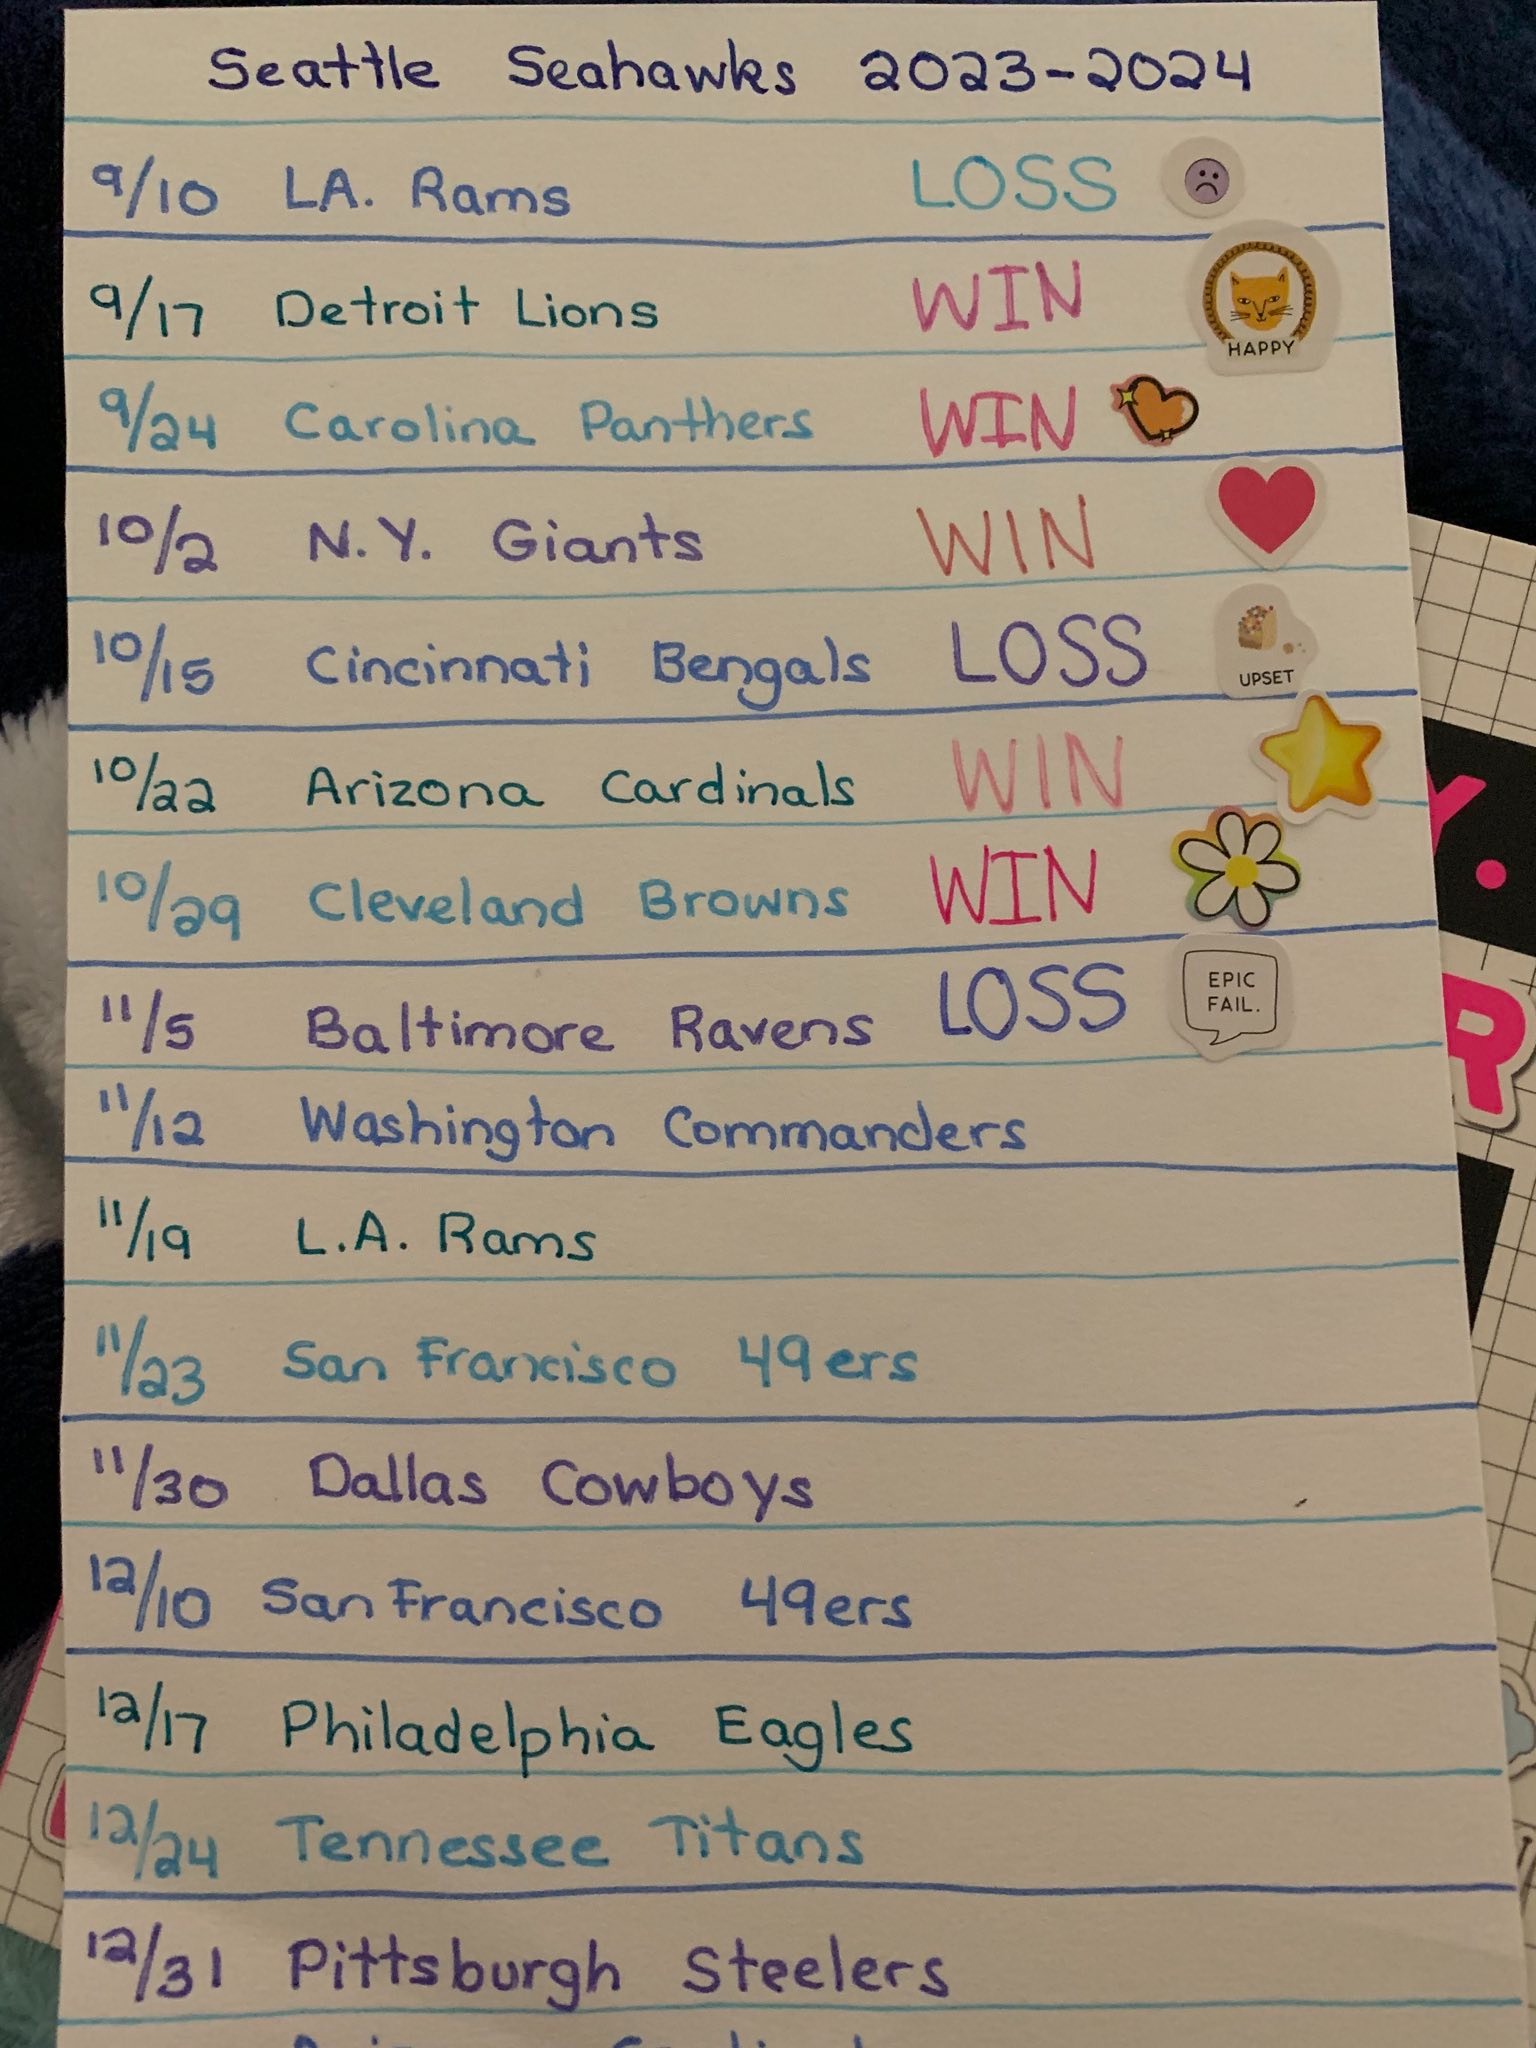 Seattle Seahawks 2023-2024
9/10 L.A. Rams LOSS
9/17 Detroit Lions WIN
HAPPY
9/24 Carolina Panthers WIN
10/2 N.Y. Giants WIN
10/15 Cincinnati Bengals LOSS
UPSET
10/22 Arizona Cardinals WIN
Y.
10/29 Cleveland Browns WIN
11/5 Baltimore Ravens LOSS
EPIC
FAIL.
R
11/12 Washington Commanders
11/19 L.A. Rams
11/23 San Francisco 49ers
11/30 Dallas Cowboys
12/10 San Francisco 49ers
12/17 Philadelphia Eagles
12/24 Tennessee Titans
12/31 Pittsburgh Steelers